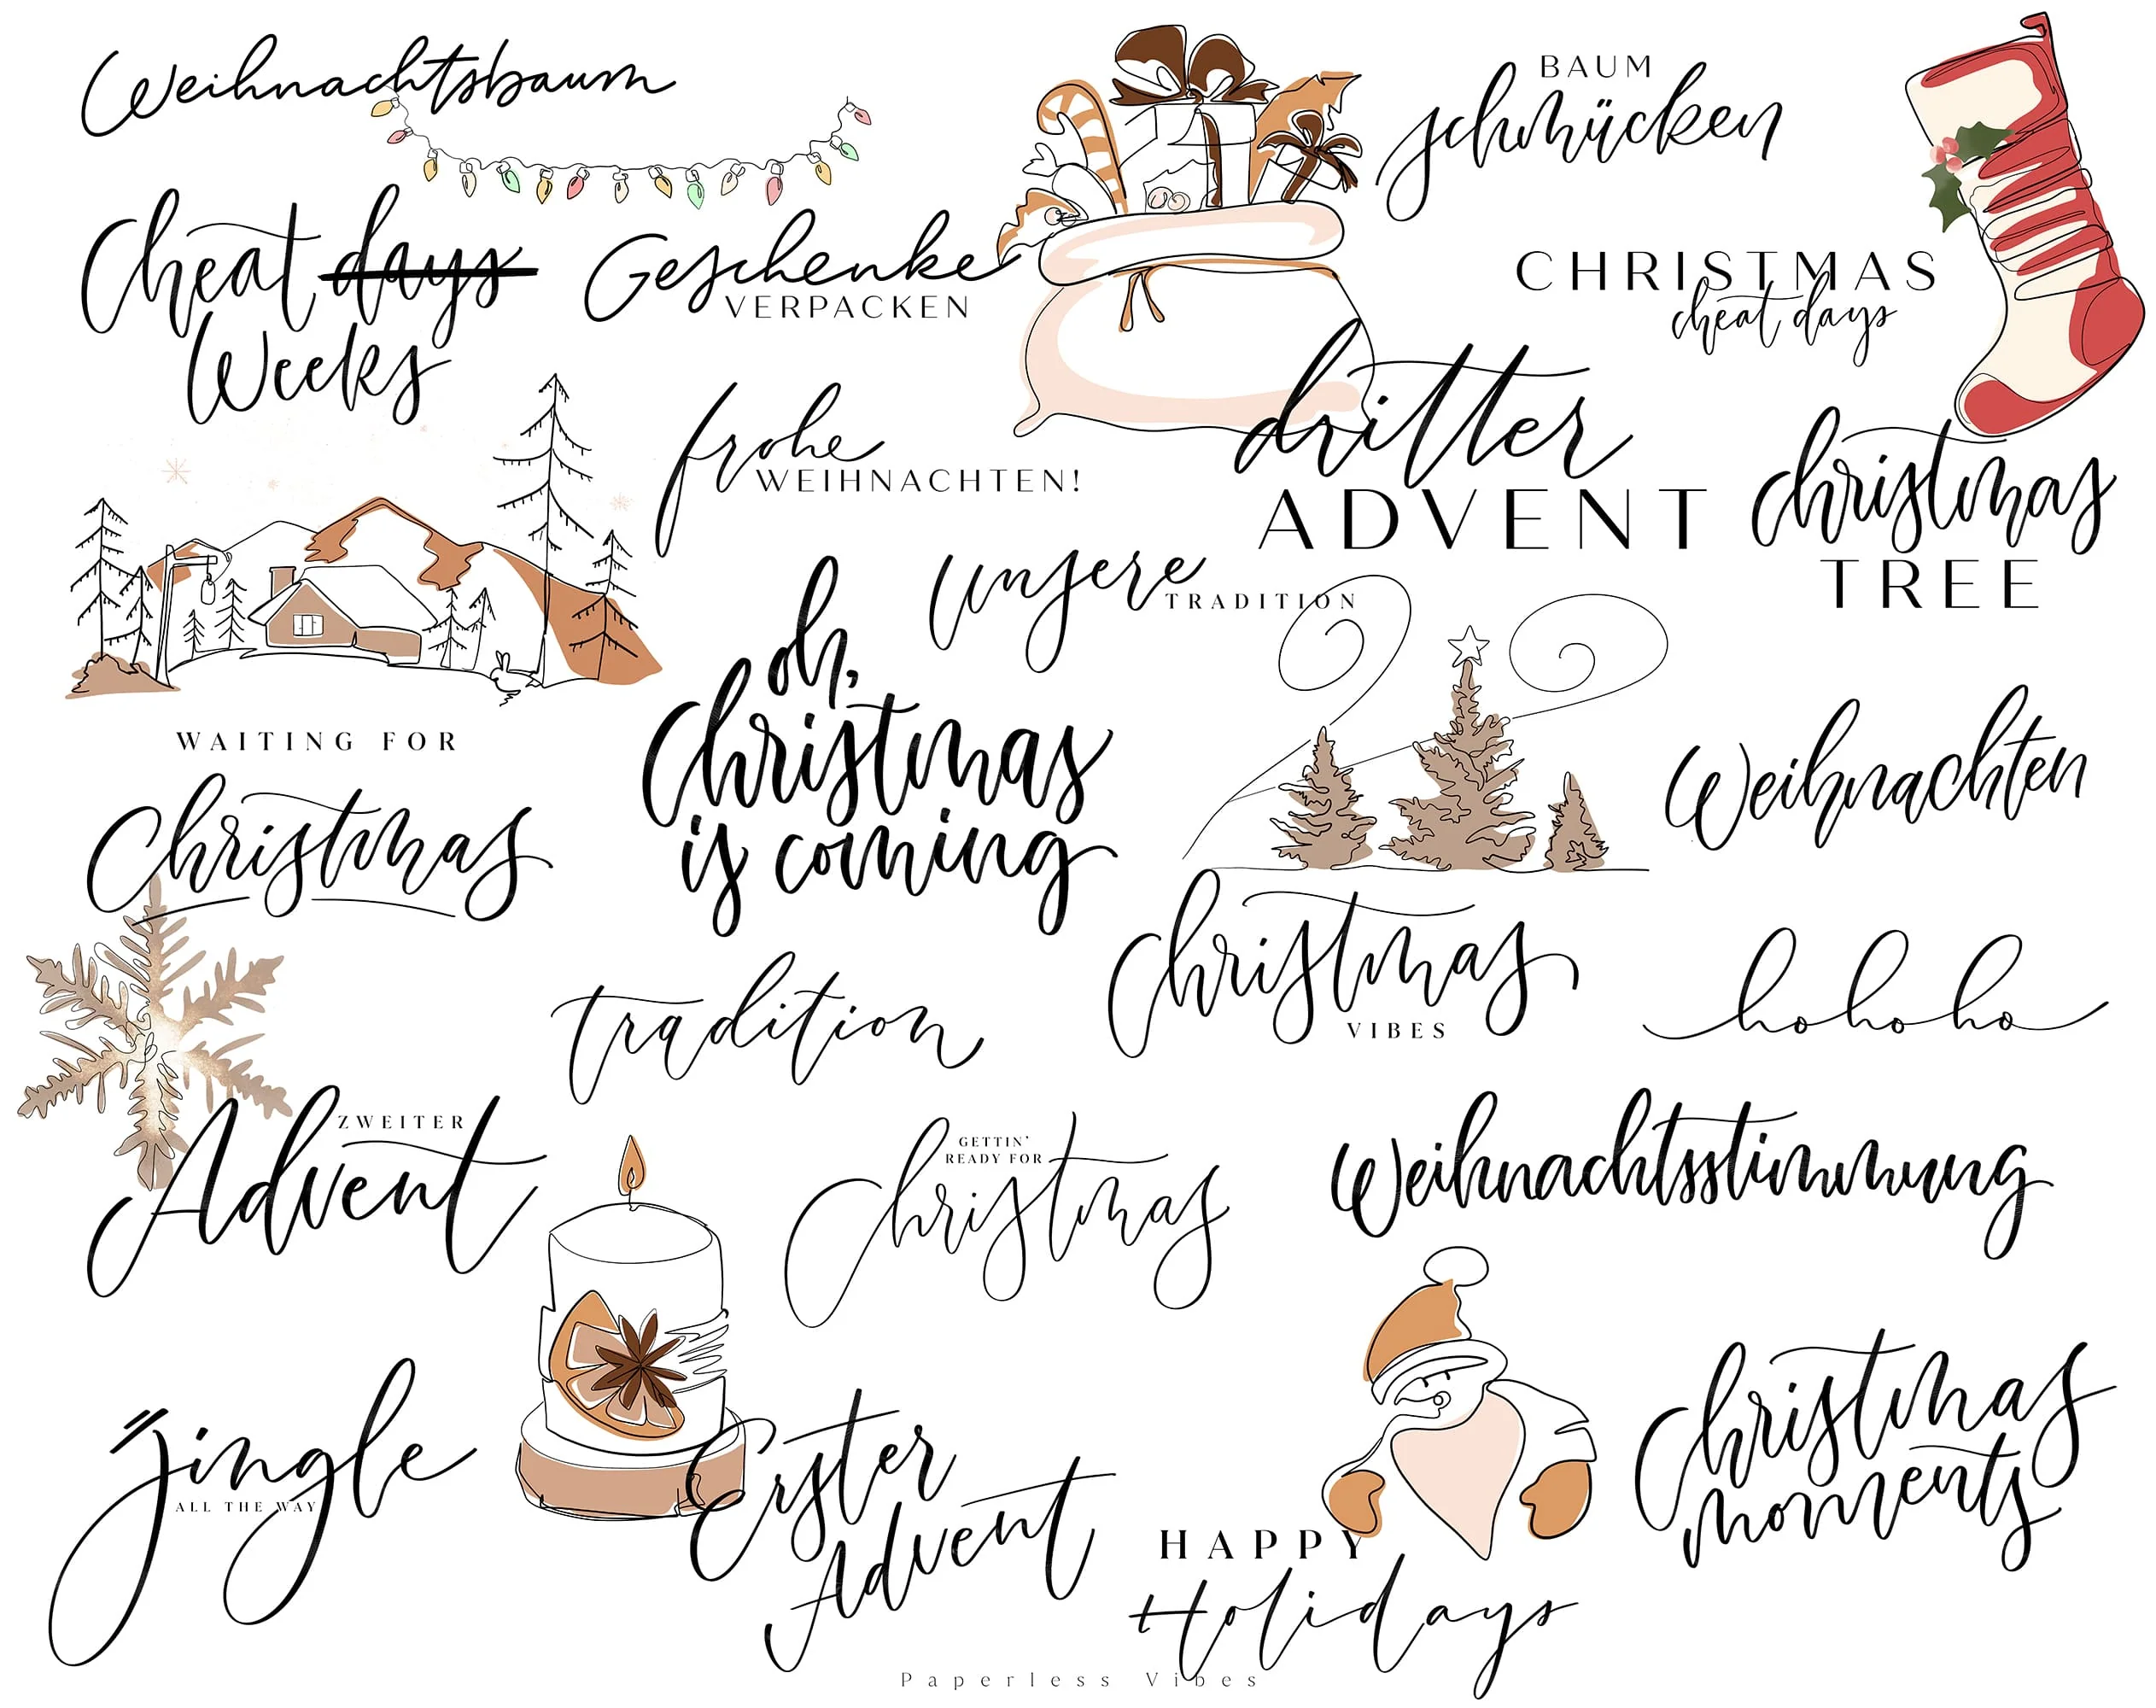 Weihnachtsbaum
BAUM
schmücken
Cheat days
Weeks
Geschenke
VERPACKEN
CHRISTMAS
cheat days
frohe
WEIHNACHTEN!
dritter
ADVENT
christmas
TREE
unsere
TRADITION
oh,
christmas
is coming
WAITING FOR
Christmas
Weihnachten
christmas
VIBES
hohoho
tradition
ZWEITER
Advent
GETTIN'
READY FOR
christmas
Weihnachtsstimmung
jingle
ALL THE WAY
Erster
Advent
HAPPY
Holidays
christmas
moments
Paperless Vibes